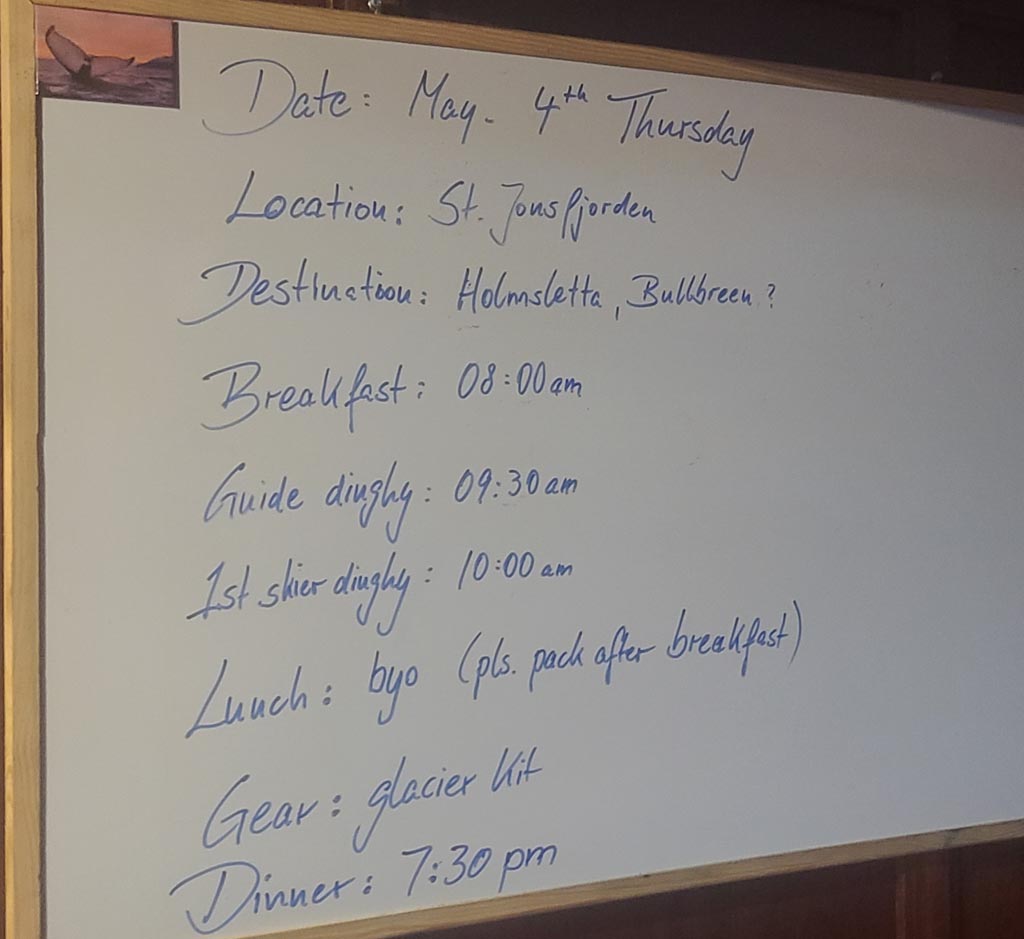 Date: May. 4th Thursday
Location: St. Jonsfjorden
Destination: Holmsletta, Bullbreen?
Breakfast: 08:00am
Guide dinghy: 09:30am
1st skier dinghy: 10:00 am
Lunch: byo (pls. pack after breakfast)
Gear: glacier kit
Dinner: 7:30 pm